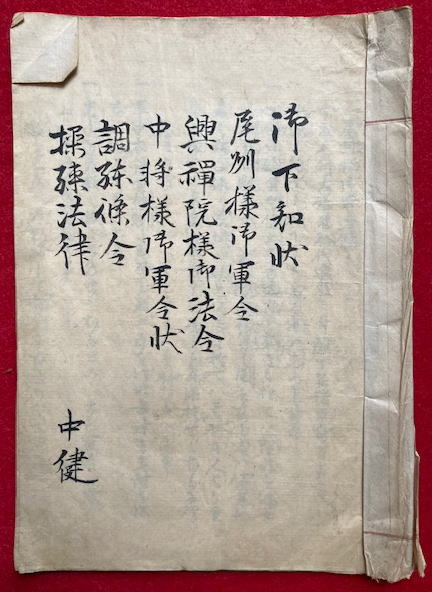 御下知状
尾州様御軍令
興禪院様御法令
中将様御軍令状
調練條令
操練法律
中健